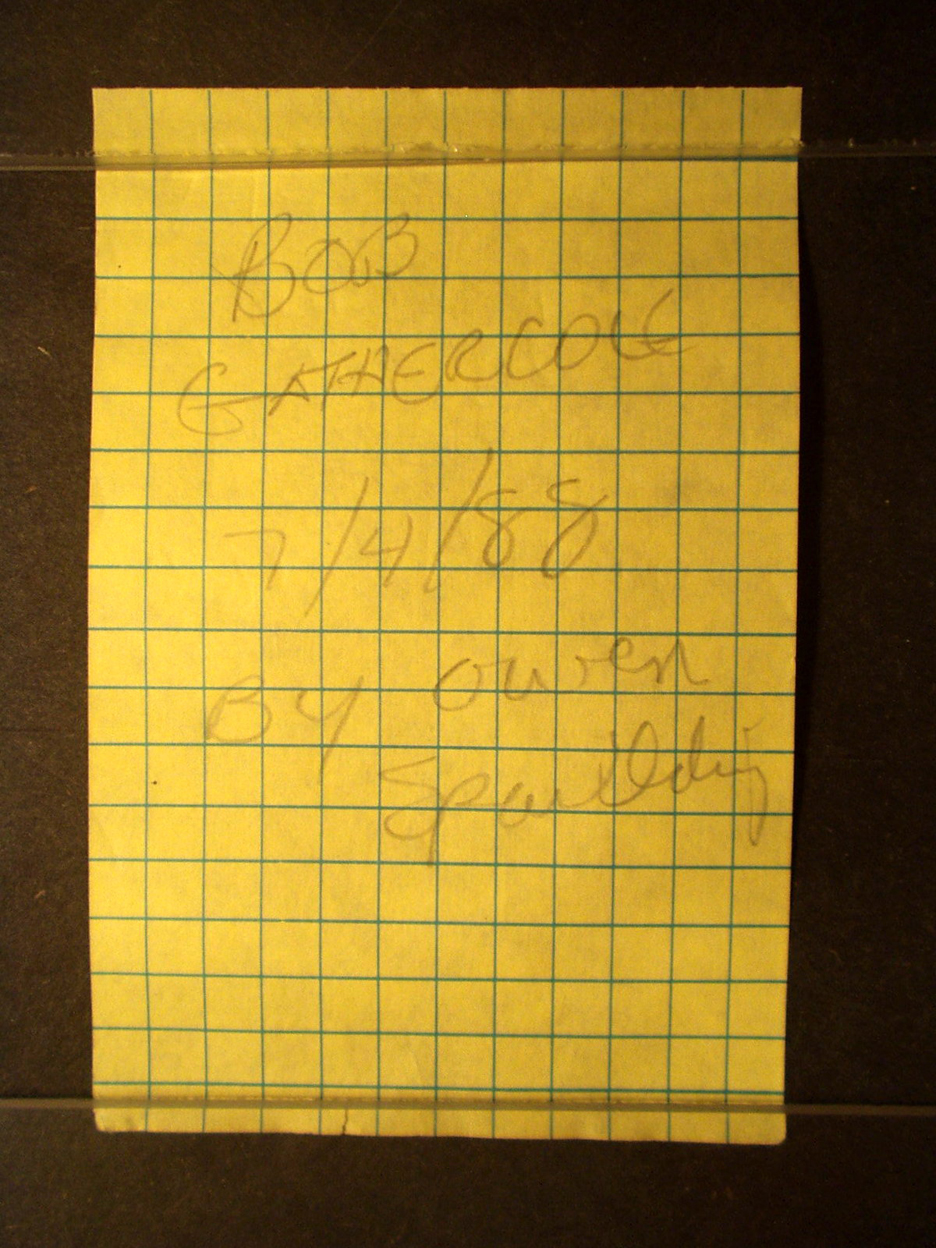 BOB
GATHERCOLE
7/4/88
BY Owen
Spaulding